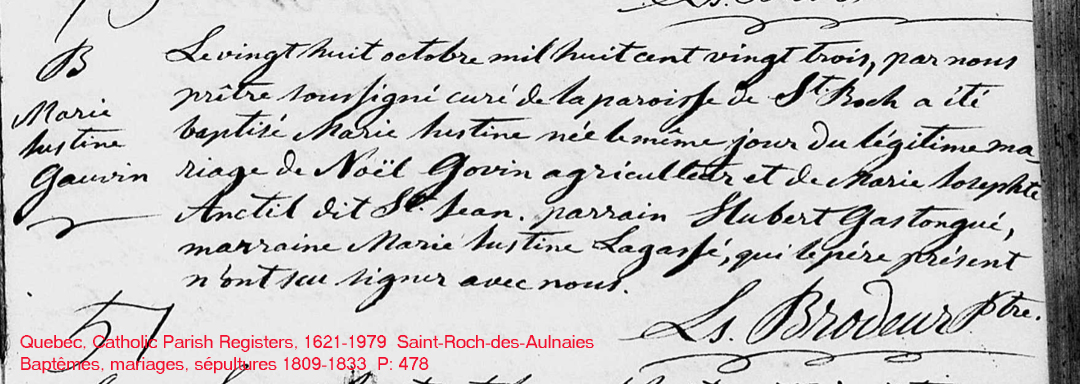 B
Marie
Justine
Gauvin
Le vingt huit octobre mil huit cent vingt trois, par nous
prêtre soussigné curé de la paroisse de St. Roch a été
baptisé Marie Justine née le même jour du légitime ma-
riage de Noël Govin agriculteur et de Marie Josephte
Anctil dit St. Jean. parrain Hubert Gastongué,
marraine Marie Justine Lagassé, qui le père présent
n'ont su signer avec nous.
Ls. Brodeur Ptre.
Quebec, Catholic Parish Registers, 1621-1979 Saint-Roch-des-Aulnaies
Baptêmes, mariages, sépultures 1809-1833 P: 478